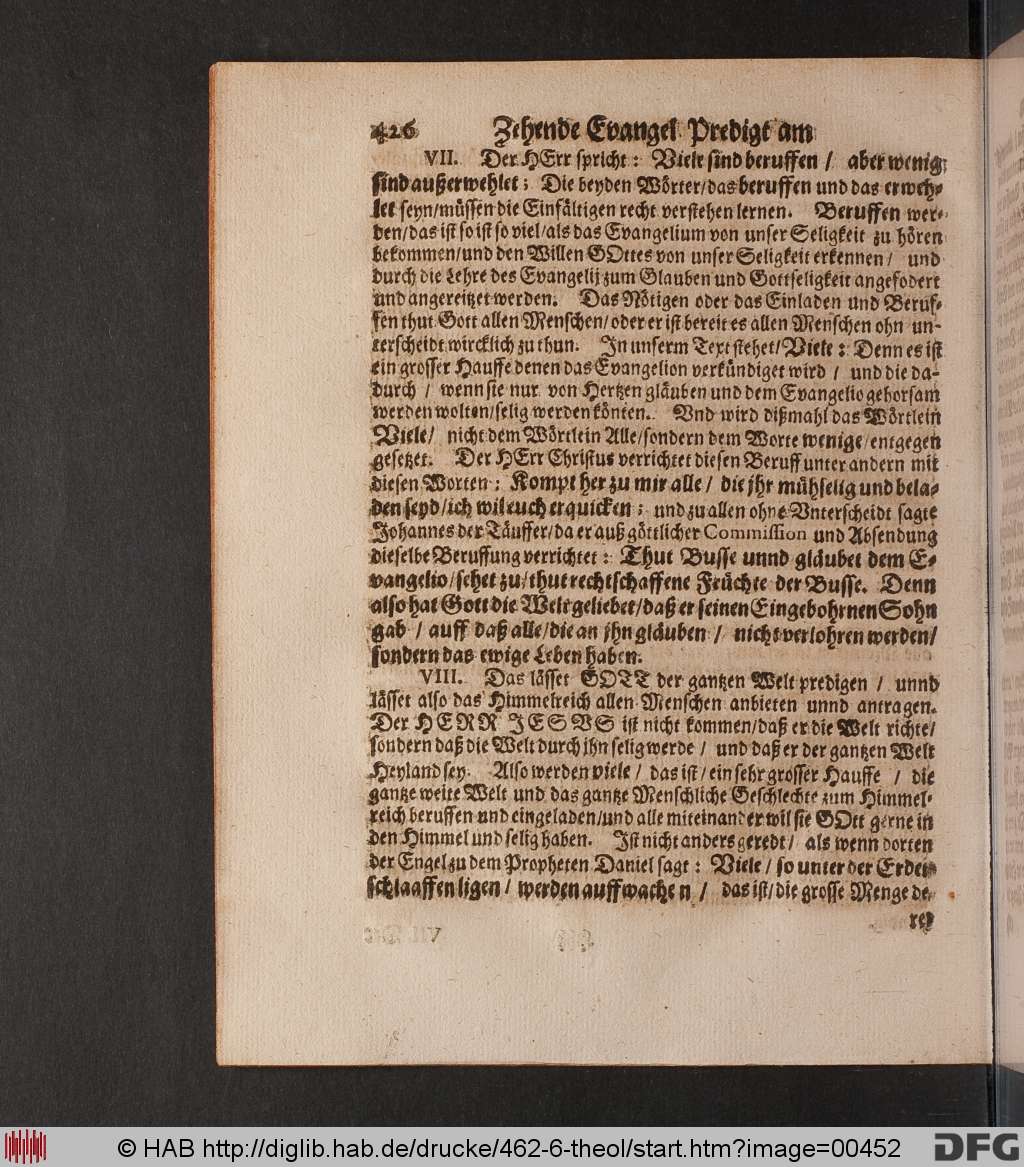 426 Zehende Evangel. Predigt am
VII. Der HErr spricht: Viele sind beruffen / aber wenig
sind außerwehlet; Die beyden Wörter/das beruffen und das erweh-
let seyn/müssen die Einfältigen recht verstehen lernen. Beruffen wer-
den/das ist so ist so viel/als das Evangelium von unser Seligkeit zu hören
bekommen/und den Willen GOttes von unser Seligkeit erkennen / und
durch die Lehre des Evangelij zum Glauben und Gottseligkeit angefodert
und angereitzet werden. Das Nötigen oder das Einladen und Beruf-
fen thut Gott allen Menschen/oder er ist bereit es allen Menschen ohn un-
terscheidt wircklich zu thun. In unserm Text stehet/Viele: Denn es ist
ein grosser Hauffe denen das Evangelion verkündiget wird / und die da-
durch / wenn sie nur von Hertzen gläuben und dem Evangelio gehorsam
werden wolten/selig werden könten. Vnd wird dißmahl das Wörtlein
Viele/ nicht dem Wörtlein Alle/sondern dem Worte wenige/entgegen
gesetzet. Der HErr Christus verrichtet diesen Beruff unter andern mit
diesen Worten: Kompt her zu mir alle / die jhr mühselig und bela-
den seyd/ich wil euch erquicken; und zu allen ohne Vnterscheidt sagte
Johannes der Täuffer/da er auß göttlicher Commission und Absendung
dieselbe Beruffung verrichtet: Thut Busse unnd gläubet dem E-
vangelio/sehet zu/thut rechtschaffene Früchte der Busse. Denn
also hat Gott die Welt geliebet/daß er seinen Eingebohrnen Sohn
gab / auff daß alle/die an jhn gläuben / nicht verlohren werden/
sondern das ewige Leben haben.
VIII. Das lässet GOTT der gantzen Welt predigen / unnd
lässet also das Himmelreich allen Menschen anbieten unnd antragen.
Der HERR JESVS ist nicht kommen/daß er die Welt richte/
sondern daß die Welt durch jhn selig werde / und daß er der gantzen Welt
Heyland sey. Also werden viele / das ist/ein sehr grosser Hauffe / die
gantze weite Welt und das gantze Menschliche Geschlechte zum Himmel-
reich beruffen und eingeladen/und alle miteinander wil sie GOtt gerne in
den Himmel und selig haben. Ist nicht anders geredt/ als wenn dorten
der Engel zu dem Propheten Daniel sagt: Viele / so unter der Erden
schlaaffen ligen / werden auffwachen / das ist/die grosse Menge de-
rer
© HAB http://diglib.hab.de/drucke/462-6-theol/start.htm?image=00452
DFG